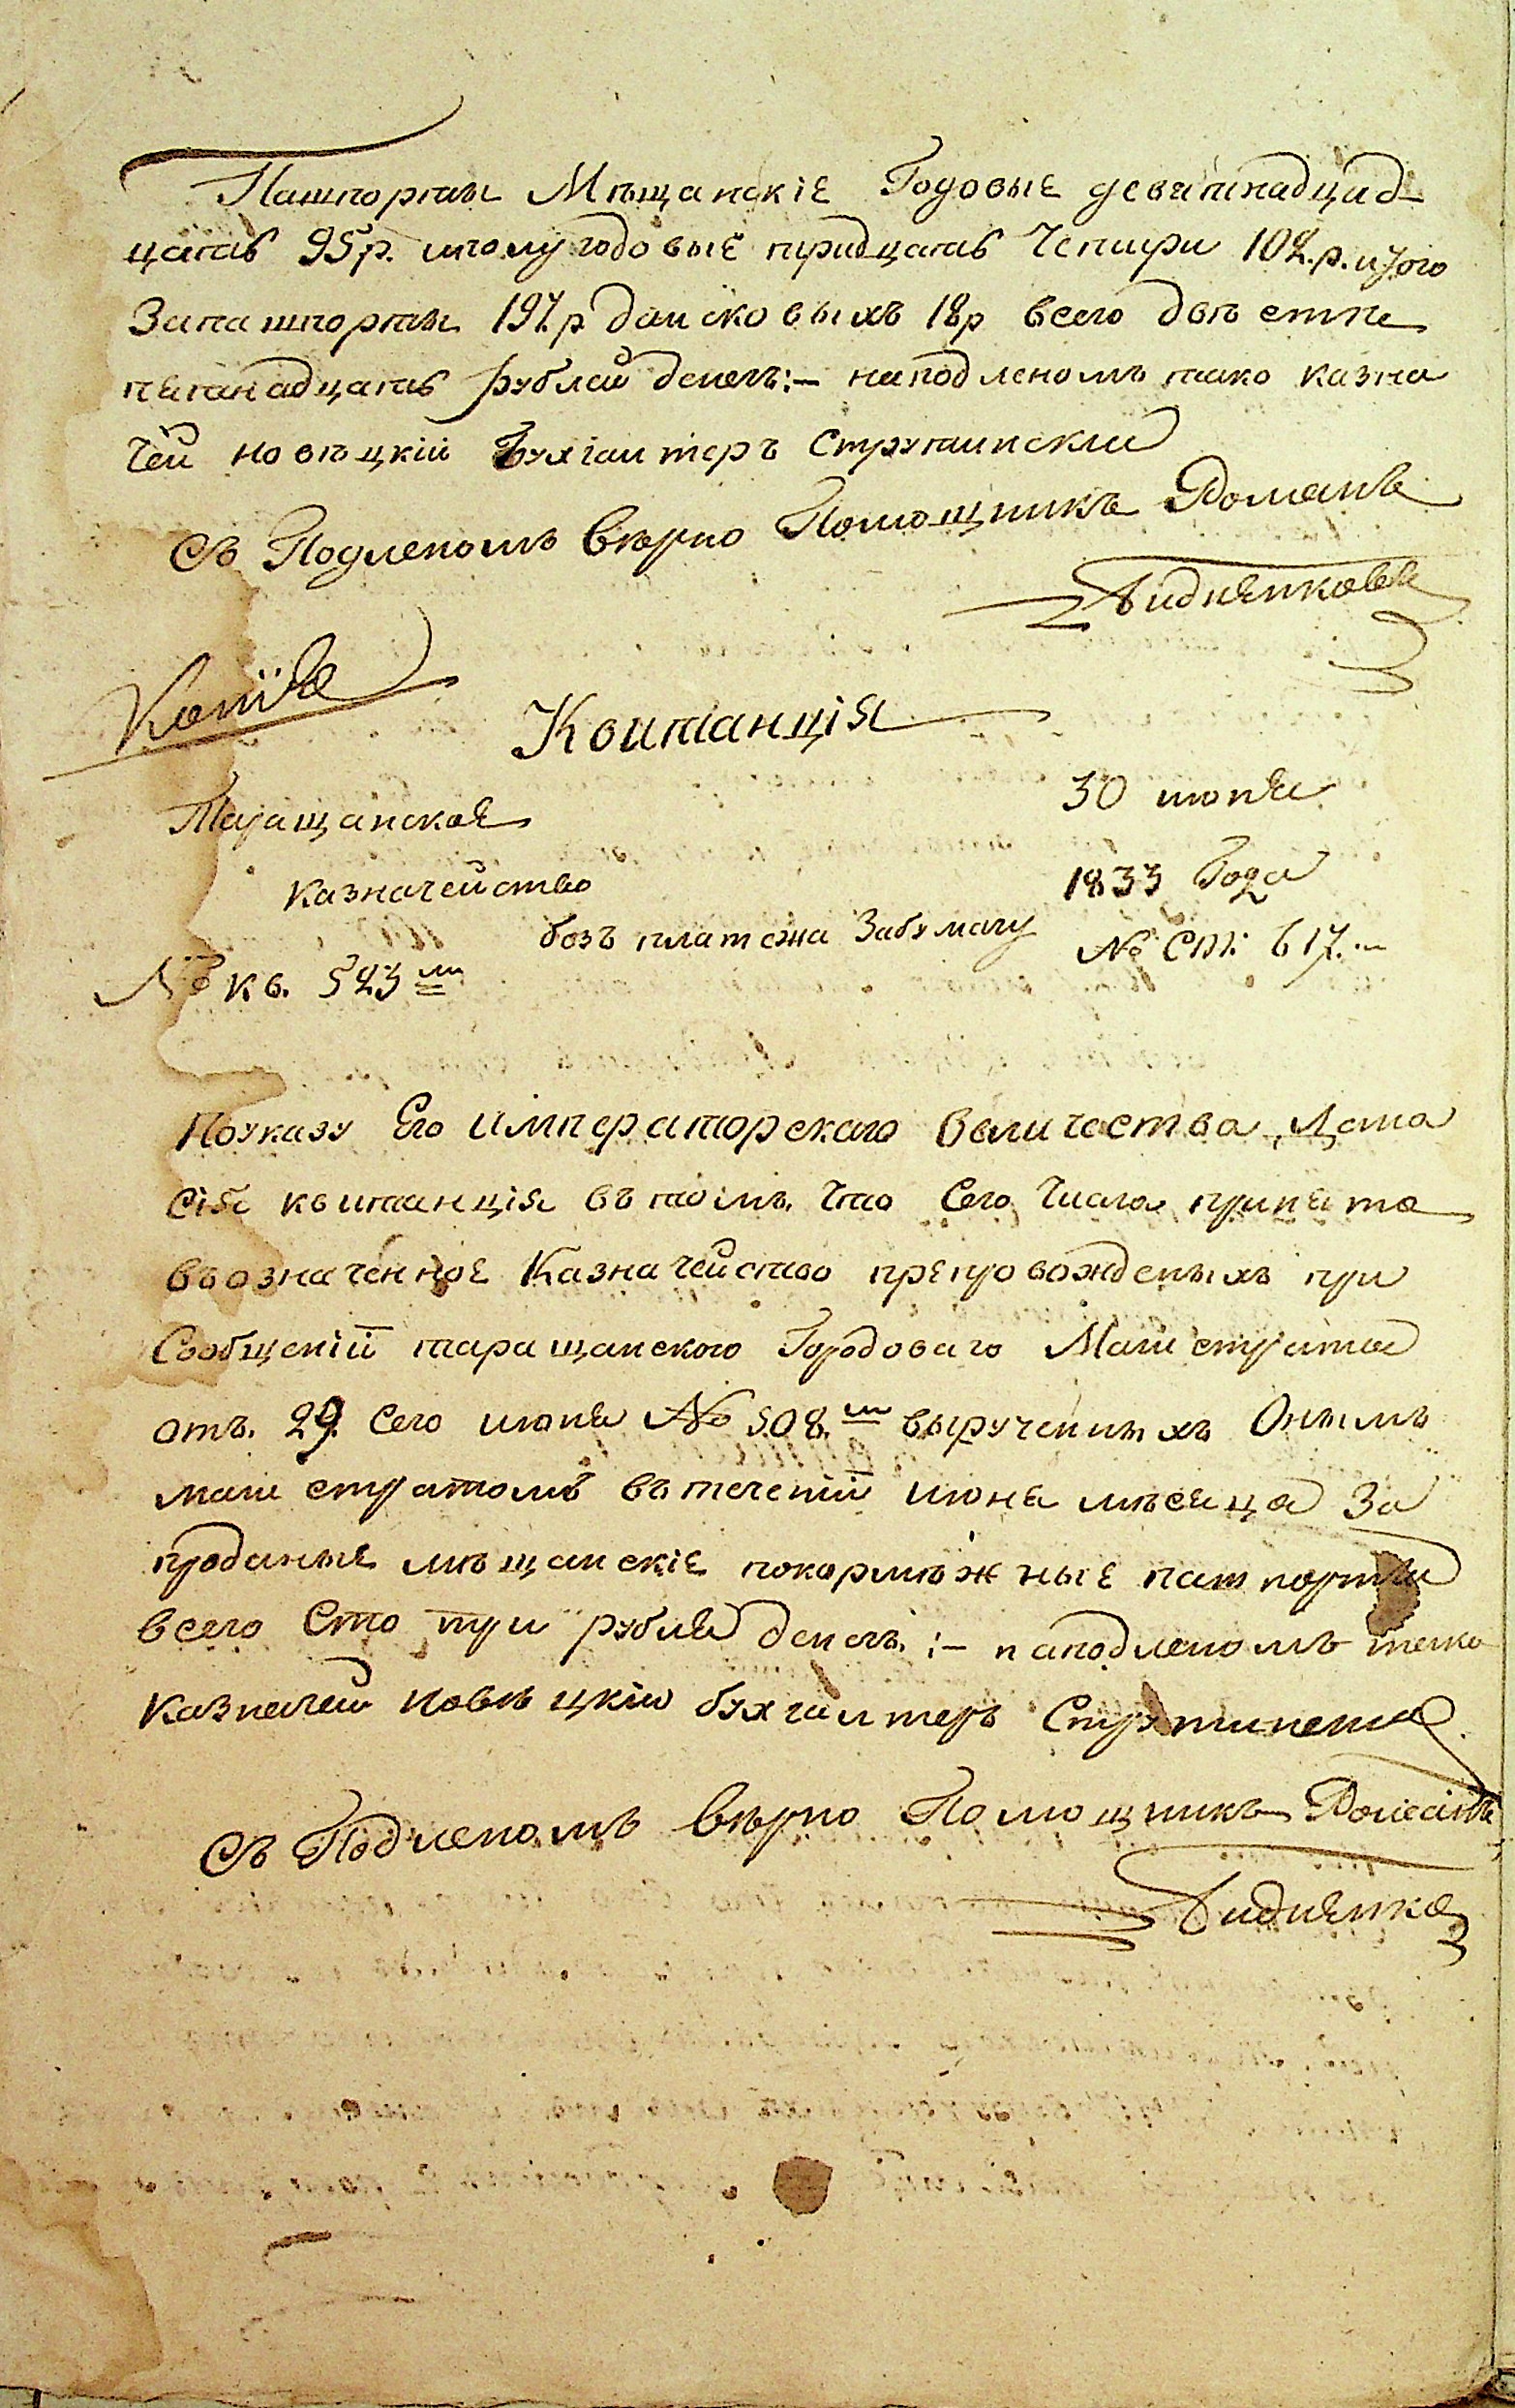 Пашпорты Мѣщанскіе Годовые девятнадцад-
цать 95 р. иполугодовые тридцать Четыри 102. р. итого
Запашпорты 197. р донсковыхъ 18 р всего двѣ стѣ
пятнадцать рублей денегъ:— наподленомъ тако казна
чей новѣцкій Бухгалтеръ Струтинскій
Съ Подленомъ вѣрно Помощникъ Романъ
Копія
Квитанція
Таращанское
30 июня
казначейство
1833 Года
безъ платежа Забумагу
№ ст: 617.
№ кв. 523
Поуказу Его императорскаго величества, Дана
сія квитанція въ томъ, что Сего Числа принято
въозначенное Казначейство препровожденыхъ при
Сообщеніи таращанского Городоваго Магистрата
отъ. 29. Сего июня № 508. вырученныхъ Онымъ
магистратомъ въ теченіи июня мѣсяца За
проданые мѣщанскіе покормѣжные пашпорты
всего Сто три рубля денегъ. :— наподленомъ тако
казначей новѣцкій бухгалтеръ Струтинский
Съ Подленомъ вѣрно Помощникъ Романъ